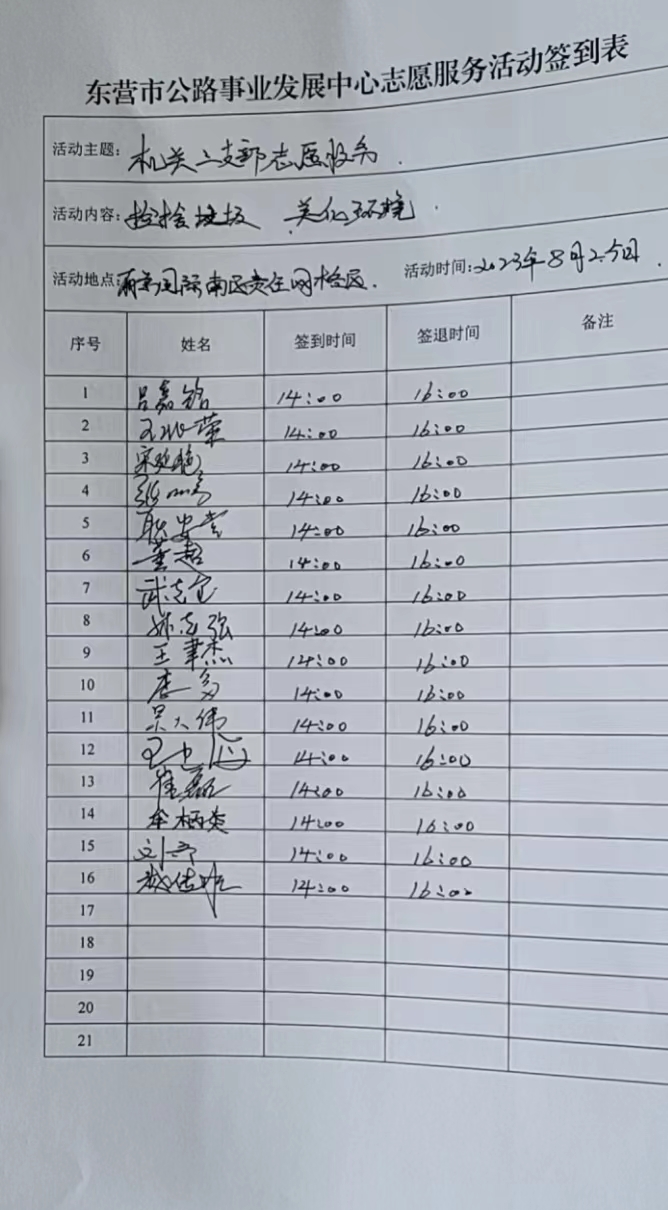 东营市公路事业发展中心志愿服务活动签到表
活动主题: 机关二支部志愿服务.
活动内容: 捡拾垃圾 美化环境.
活动地点: 国际南区责任网格区. 活动时间: 2023年8月25日.
序号 姓名 签到时间 签退时间 备注
1 吕嘉铭 14:00 16:00
2 14:00 16:00
3 宋艳艳 14:00 16:00
4 14:00 16:00
5 14:00 16:00
6 董超 14:00 16:00
7 武志宝 14:00 16:00
8 孙志强 14:00 16:00
9 王聿杰 14:00 16:00
10 14:00 16:00
11 景大伟 14:00 16:00
12 14:00 16:00
13 崔磊 14:00 16:00
14 牟栖英 14:00 16:00
15 14:00 16:00
16 14:00 16:00
17
18
19
20
21